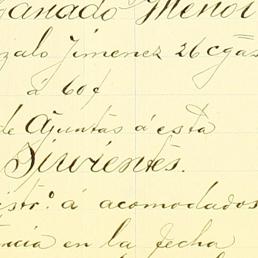 Ganado Menor
zalo Jimenez 26 cgas
á 60¢
de Ajuntas á esta
Sirvientes.
istr.º á acomodados
ncia en la fecha